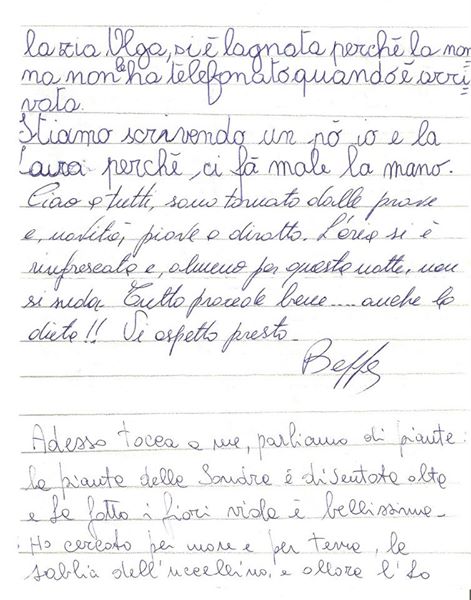 la zia Olga, si è lagnata perché la non
na non le ha telefonato quando è arri
vata.
Stiamo scrivendo un pò io e la
Laura perché, ci fà male la mano.
Ciao a tutti, sono tornato dalle prove
e, novità, piove a dirotto. L'aria si è
rinfrescata e, almeno per questa notte, non
si suda. Tutto procede bene.... anche la
dieta!! Vi aspetto presto.
Beppe
Adesso tocca a me, parliamo di piante:
la pianta della Sandra é diventata alta
e fa fatto i fiori viola è bellissima.
Ho cercato per mare e per terra, la
sabbia dell'uccellino, e allora l'ho